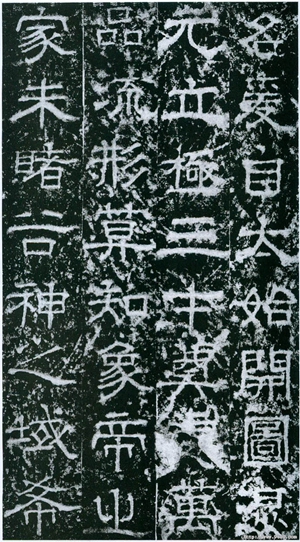 名爰自大始開圖
元立極三才奠萬
品流形知象帝之
家未睹谷神之域希